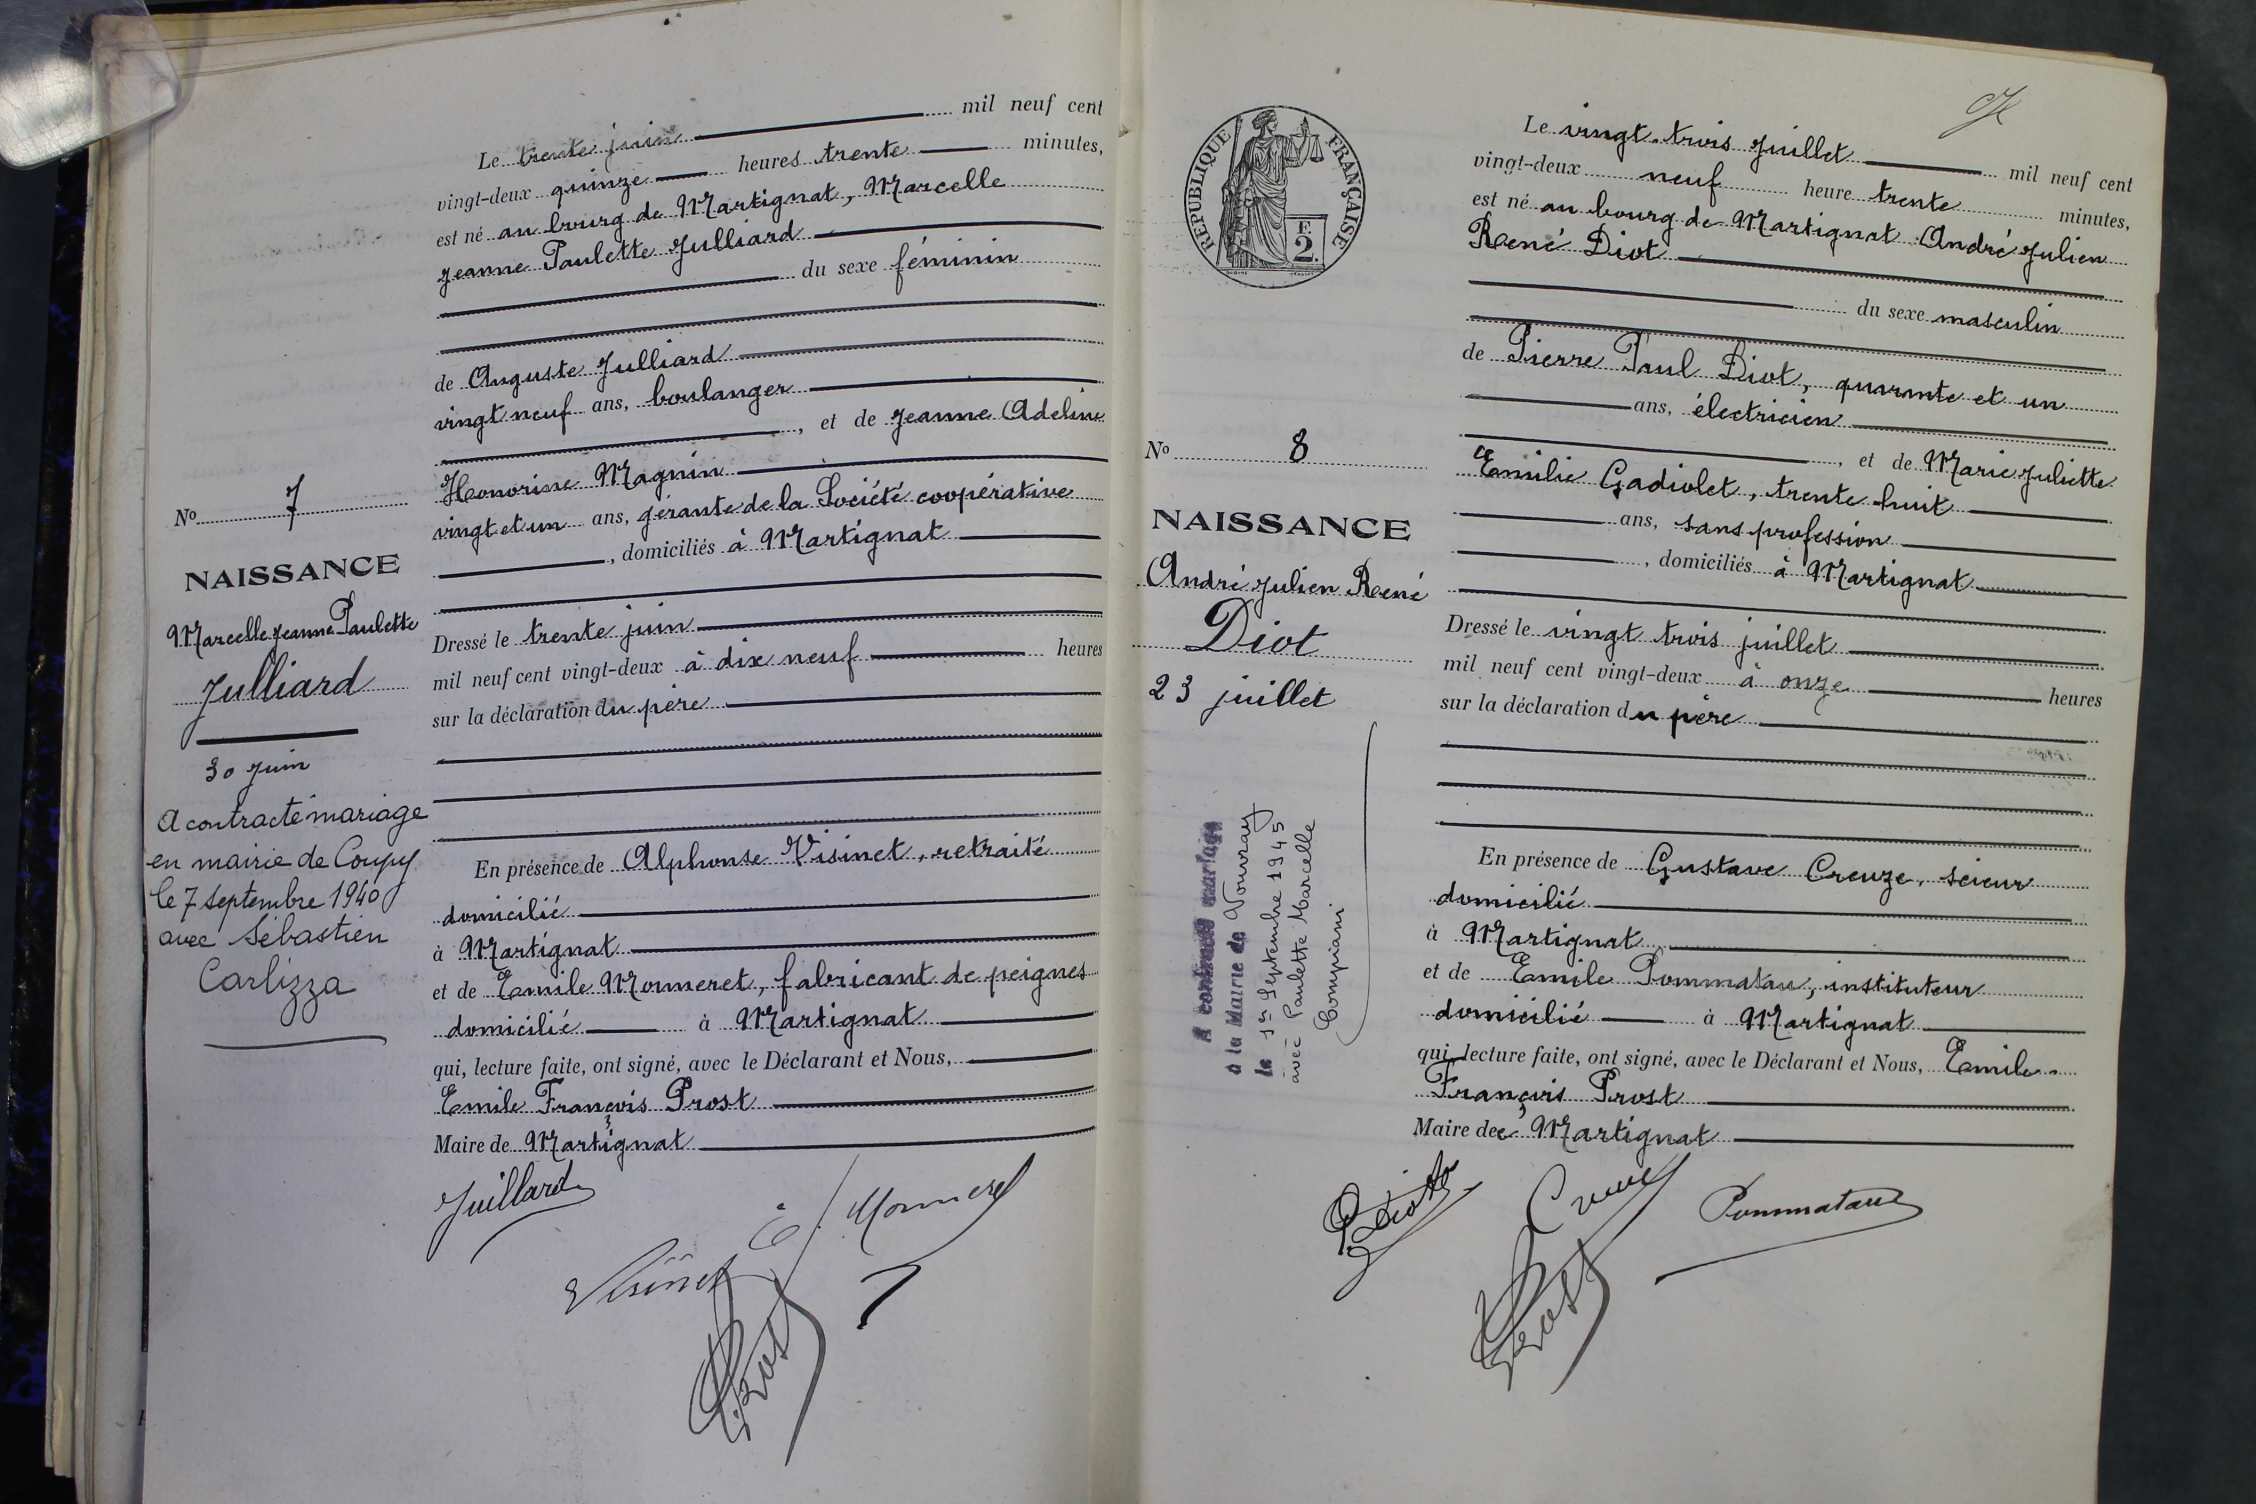 Le trente juin mil neuf cent
vingt-deux quinze heures trente minutes,
est né au bourg de Martignat, Marcelle
Jeanne Paulette Julliard
du sexe féminin
de Auguste Julliard
vingt neuf ans, boulanger
, et de Jeanne Adeline
Honorine Magnin
vingt et un ans, gérante de la Société coopérative
, domiciliés à Martignat
Dressé le trente juin
mil neuf cent vingt-deux à dix neuf heures
sur la déclaration du père
En présence de Alphonse Visinet, retraité
domicilié
à Martignat
et de Emile Monneret, fabricant de peignes
domicilié à Martignat
qui, lecture faite, ont signé, avec le Déclarant et Nous,
Emile François Prost
Maire de Martignat
Juillard
E. Monneret
Visinet
Prost
No 7
NAISSANCE
Marcelle Jeanne Paulette
Julliard
30 juin
A contracté mariage
en mairie de Coupy
le 7 septembre 1940
avec Sébastien
Carlizza
RÉPUBLIQUE FRANÇAISE
F.
2.
No 8
NAISSANCE
André Julien René
Diot
23 juillet
A contracté mariage
à la Mairie de Vouvray
le 1er Septembre 1945
avec Paulette Marcelle
Compiani
Le vingt-trois Juillet mil neuf cent
vingt-deux neuf heure trente minutes,
est né au bourg de Martignat André Julien
René Diot
du sexe masculin
de Pierre Paul Diot, quarante et un
ans, électricien
, et de Marie Juliette
Emilie Gadiolet, trente huit
ans, sans profession
, domiciliés à Martignat
Dressé le vingt trois juillet
mil neuf cent vingt-deux à onze heures
sur la déclaration du père
En présence de Gustave Creuze, scieur
domicilié
à Martignat
et de Emile Pommatau, instituteur
domicilié à Martignat
qui, lecture faite, ont signé, avec le Déclarant et Nous, Emile
François Prost
Maire de Martignat
Diot
Creuze
Pommatau
Prost